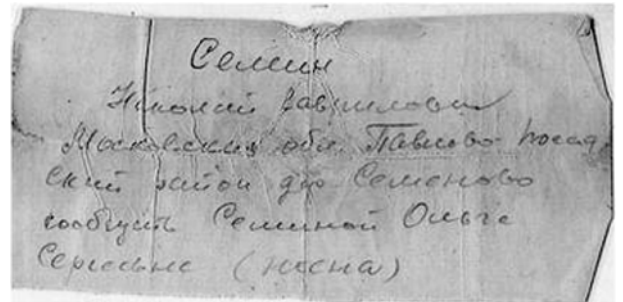 Семин
Николай Гаврилович
Московская обл. Павлово-Посад.
ский район дер Семеново
сообщить Семиной Ольге
Сергеевне (жена)